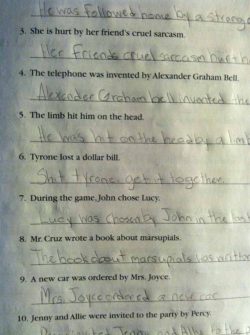 He was followed home by a strong
3. She is hurt by her friend's cruel sarcasm.
Her friends cruel sarcasm hurt h
4. The telephone was invented by Alexander Graham Bell.
Alexander Graham bell invented the
5. The limb hit him on the head.
He was hit on the head by a limb
6. Tyrone lost a dollar bill.
Shit tyrone, get it together.
7. During the game, John chose Lucy.
Lucy was chosen by John in the
8. Mr. Cruz wrote a book about marsupials.
The book about marsupials was written
9. A new car was ordered by Mrs. Joyce.
Mrs. Joyce ordered a new car.
10. Jenny and Allie were invited to the party by Percy.